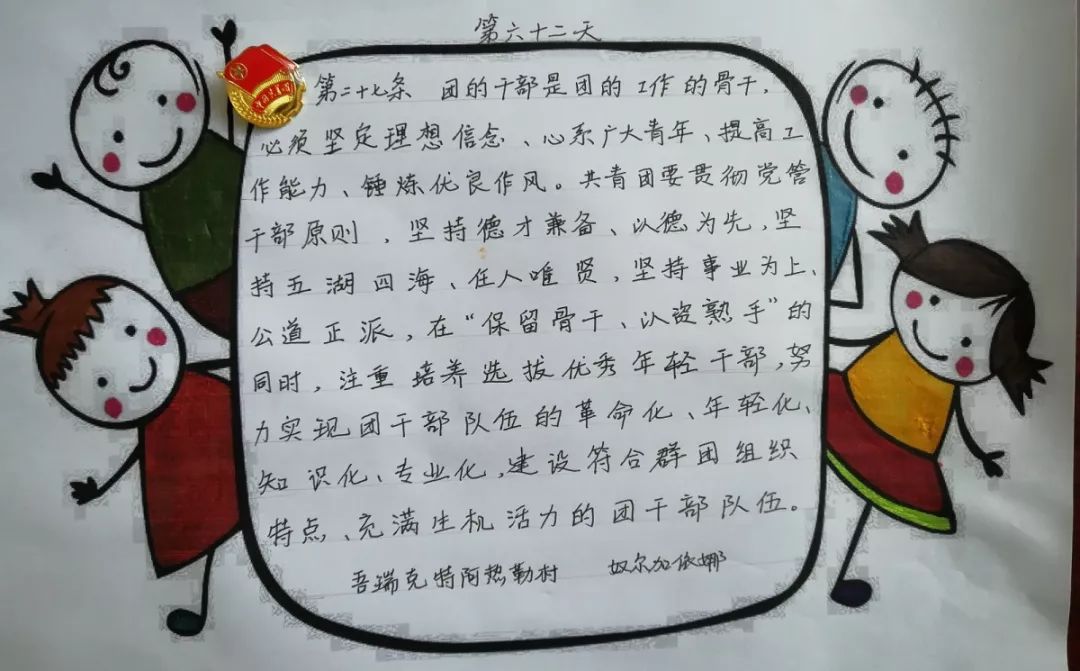 第六十二天
第二十七条 团的干部是团的工作的骨干,
必须坚定理想信念、心系广大青年、提高工
作能力、锤炼优良作风。共青团要贯彻党管
干部原则,坚持德才兼备、以德为先,坚
持五湖四海、任人唯贤,坚持事业为上、
公道正派,在“保留骨干、以资熟手”的
同时,注重培养选拔优秀年轻干部,努
力实现团干部队伍的革命化、年轻化、
知识化、专业化,建设符合群团组织
特点、充满生机活力的团干部队伍。
吾瑞克特阿热勒村 奴尔加依娜